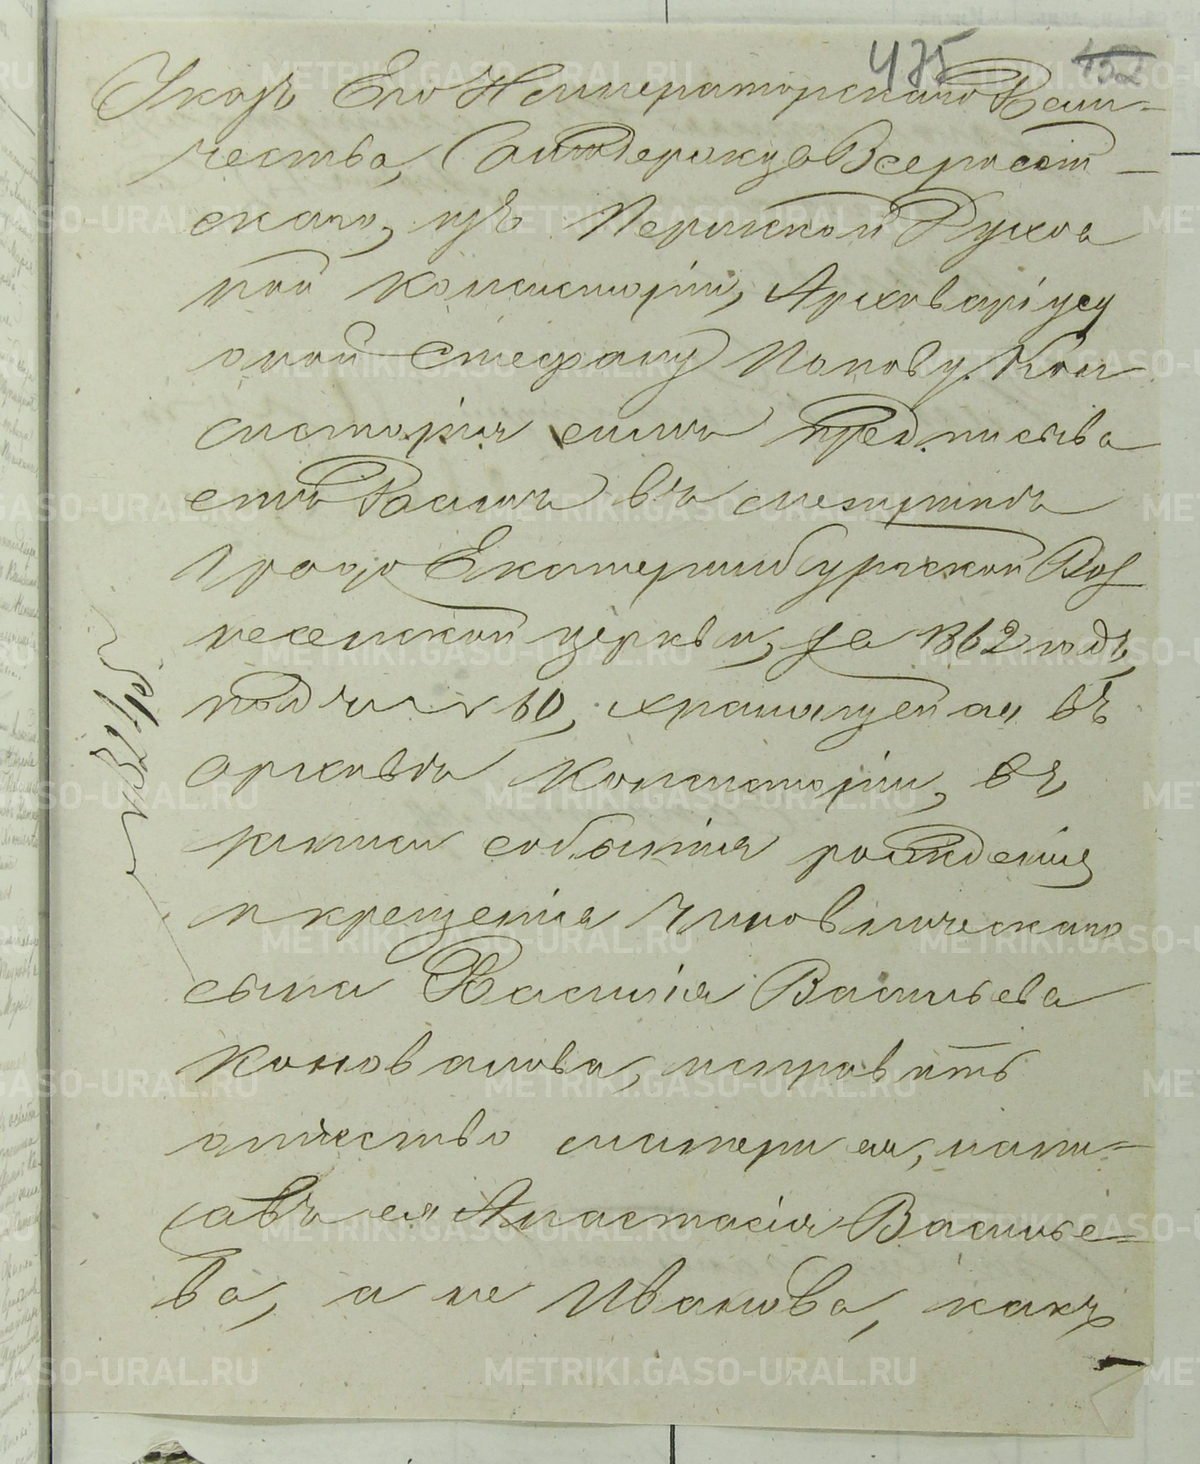 475 152
Указъ Его Императорскаго Вели-
чества, Самодержца Всероссій-
скаго, изъ Пермской Духов
ной Консисторіи, Архиваріусу
оной Стефану Попову. Кон
систорія симъ предписыва
етъ Вамъ въ метрикъ
градо Екатеринбургской Воз
несенской церкви, за 1862 годъ,
подъ № 60, хранящейся въ
архивѣ Консисторіи, въ
записи событія рожденія
и крещенія чиновническаго
сына Василія Васильева
Коновалова, исправить
отчество матери его, напи-
савъ ея Анастасія Василье-
ва, а не Иванова, какъ
METRIKI.GASO-URAL.RU